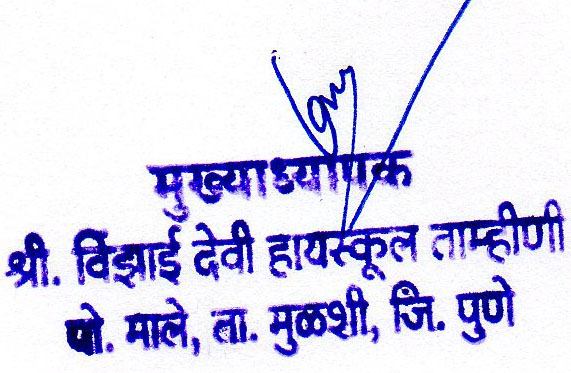 मुख्याध्यापक
श्री. विंझाई देवी हायस्कूल ताम्हीणी
पो. माले, ता. मुळशी, जि. पुणे